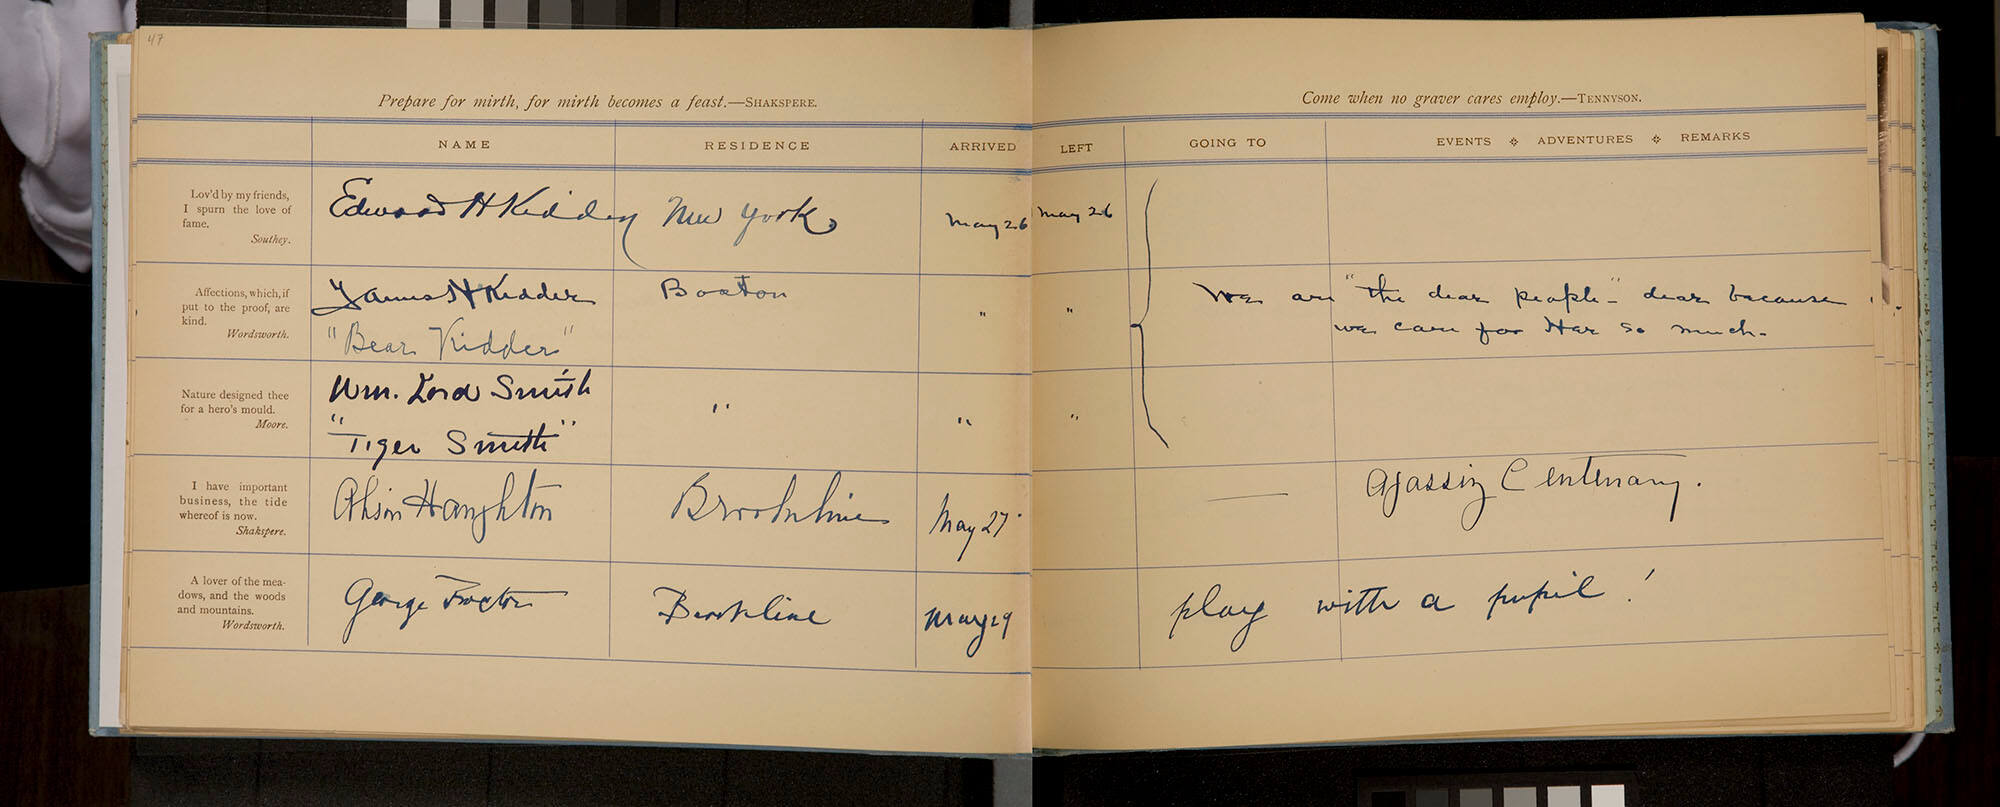 47
Prepare for mirth, for mirth becomes a feast.—SHAKSPERE.
Come when no graver cares employ.—TENNYSON.
NAME RESIDENCE ARRIVED LEFT GOING TO EVENTS ADVENTURES REMARKS
Lov'd by my friends,
I spurn the love of
fame.
Southey.
Edward H Kidder New York May 26 May 26
Affections, which, if
put to the proof, are
kind.
Wordsworth.
James H Kidder Boston " "
"Bear Kidder"
We are "the dear people"- dear because
we care for Her so much-
Nature designed thee
for a hero's mould.
Moore.
Wm. Lord Smith " " "
"Tiger Smith"
I have important
business, the tide
whereof is now.
Shakspere.
Haughton Brookline May 27 — Agassiz Centenary.
A lover of the mea-
dows, and the woods
and mountains.
Wordsworth.
George Proctor Brookline May 29 play with a pupil!